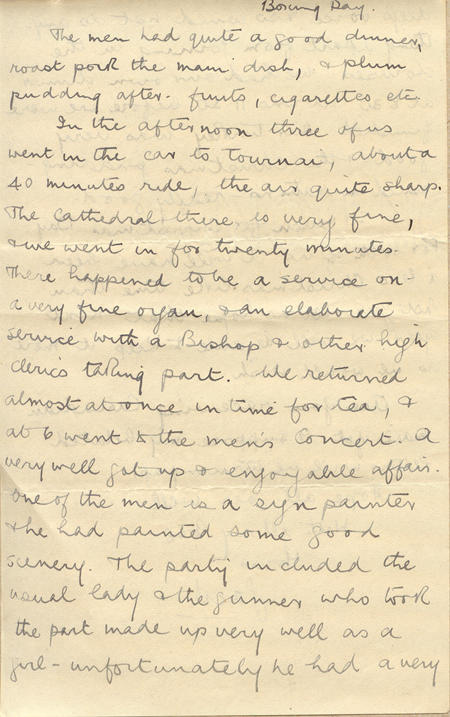 Boxing Day.
The men had quite a good dinner,
roast pork the main dish, & plum
pudding after- fruits, cigarettes etc.
In the afternoon three of us
went in the car to Tournai, about a
40 minutes ride, the air quite sharp.
The Cathedral there is very fine,
& we went in for twenty minutes.
There happened to be a service on-
a very fine organ, & an elaborate
service with a Bishop & other high
clerics taking part. We returned
almost at once in time for tea, &
at 6 went to the men's Concert. A
very well got up & enjoyable affair.
One of the men is a sign painter
& he had painted some good
scenery. The party included the
usual lady & the gunner who took
the part made up very well as a
girl - unfortunately he had a very